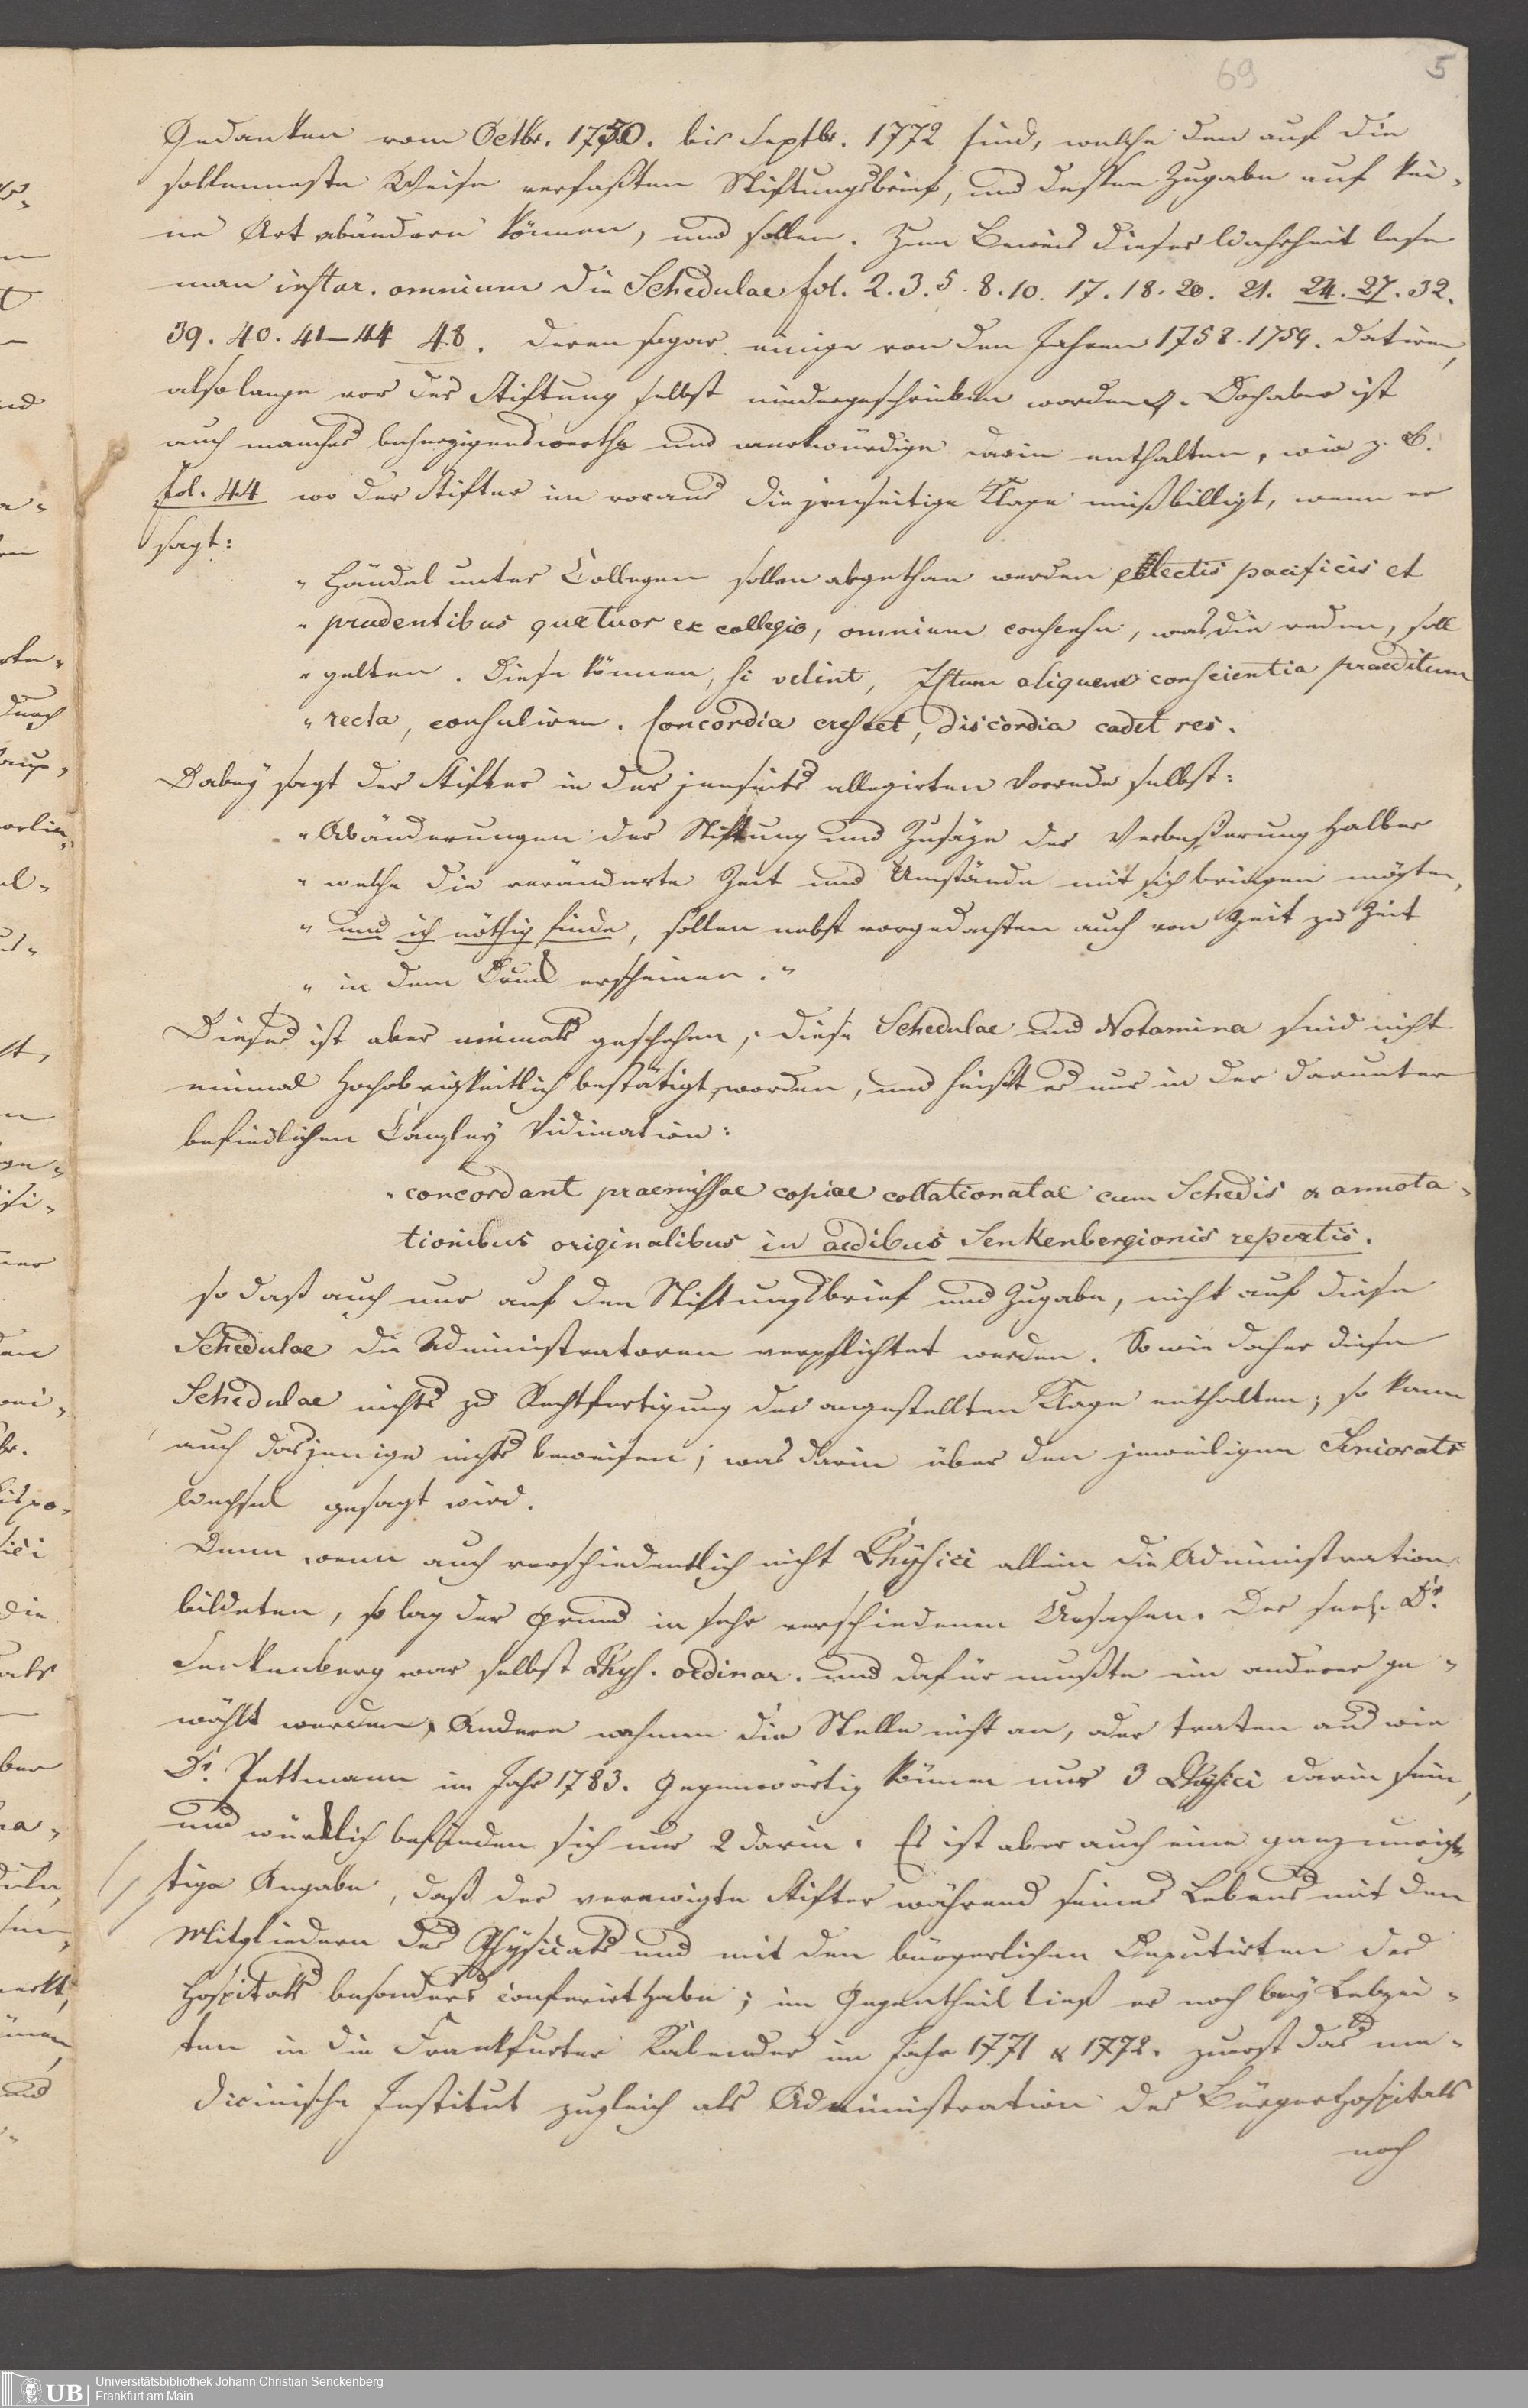 69 5
Gedanken vom Octbr. 1770. bis Septbr. 1772 sind, welche den auf die
sollenneste Weise verfaßten Stiftungsbrief, und dessen Zugabe auf kei-
ne Art abändern können, und sollen. Zum Beweis dieser Wahrheit lese
man instar. omnium die Schedulae fol. 2. 3. 5. 8. 10. 17. 18. 20. 21. 24. 27. 32.
39. 40. 41–44 48. deren sogar einige von den Jahren 1758. 1759. datiren,
also lange vor der Stiftung selbst niedergeschrieben worden. Doch aber ist
auch manches beherzigenswerthe und merkwürdige darin enthalten, wie z. B.
fol. 44 wo der Stifter im voraus die jenseitige Klage mißbilligt, wenn er
sagt:
„ Händel unter Collegen sollen abgethan werden electis pacificis et
„ prudentibus quatuor ex collegio, omnium consensu, was die reden, soll
„ gelten. Diese können, si velint, Istum aliquem conscientia praeditum
„ recta, consuliren. Concordia crescet, discordia cadet res.
Dabey sagt der Stifter in der jenseits allegirten Vorrede selbst:
„ Abänderungen der Stiftung und Zusäze der Verbeßerung halber
„ welche die veränderte Zeit und Umstände mit sich bringen mögten,
„ und ich nöthig finde, sollen nebst vorgedachten auch von Zeit zu Zeit
„ in dem Druck erscheinen. „
Dieses ist aber niemals geschehen, diese Schedulae und Notamina sind nicht
einmal hochobrigkeitlich bestätigt worden, und heißt es nur in der darunter
befindlichen Canzley Vidimation:
„ concordant praemissae copiae collationatae cum Schedis & annota-
tionibus originalibus in aedibus Senkenbergionis repertis.
so daß auch nur auf den Stiftungsbrief und Zugabe, nicht auf diese
Schedulae die Administratoren verpflichtet werden. So wie daher diese
Schedulae nichts zu Rechtfertigung der angestellten Klage enthalten; so kann
auch dasjenige nichts beweisen; was darin über den jeweiligen Seniorats
Wechsel gesagt wird.
Denn wenn auch verschiedentlich nicht Physici allein die Administration
bildeten, so lag der Grund in sehr verschiedenen Ursachen. Der seel. Dr.
Senkenberg war selbst Phys. ordinar. und dafür mußte ein anderer ge-
wählt werden, Andere nahmen die Stelle nicht an, oder traten aus wie
Dr. Pettmann im Jahr 1783. Gegenwärtig können nur 3 Physici darin sein,
und würklich befinden sich nur 2 darin. Es ist aber auch eine ganz unrich-
tige Angabe, daß der verewigte Stifter während seines Lebens mit den
Mitgliedern des Physicats und mit den bürgerlichen Deputirten des
Hospitals besonders conferirt habe; im Gegentheil ließ er noch bey Lebzei-
ten in die Frankfurter Kalender im Jahr 1771 & 1772. zuerst das me-
dicinische Institut zugleich als Administration des Bürgerhospitals
noch
UB Universitätsbibliothek Johann Christian Senckenberg
Frankfurt am Main